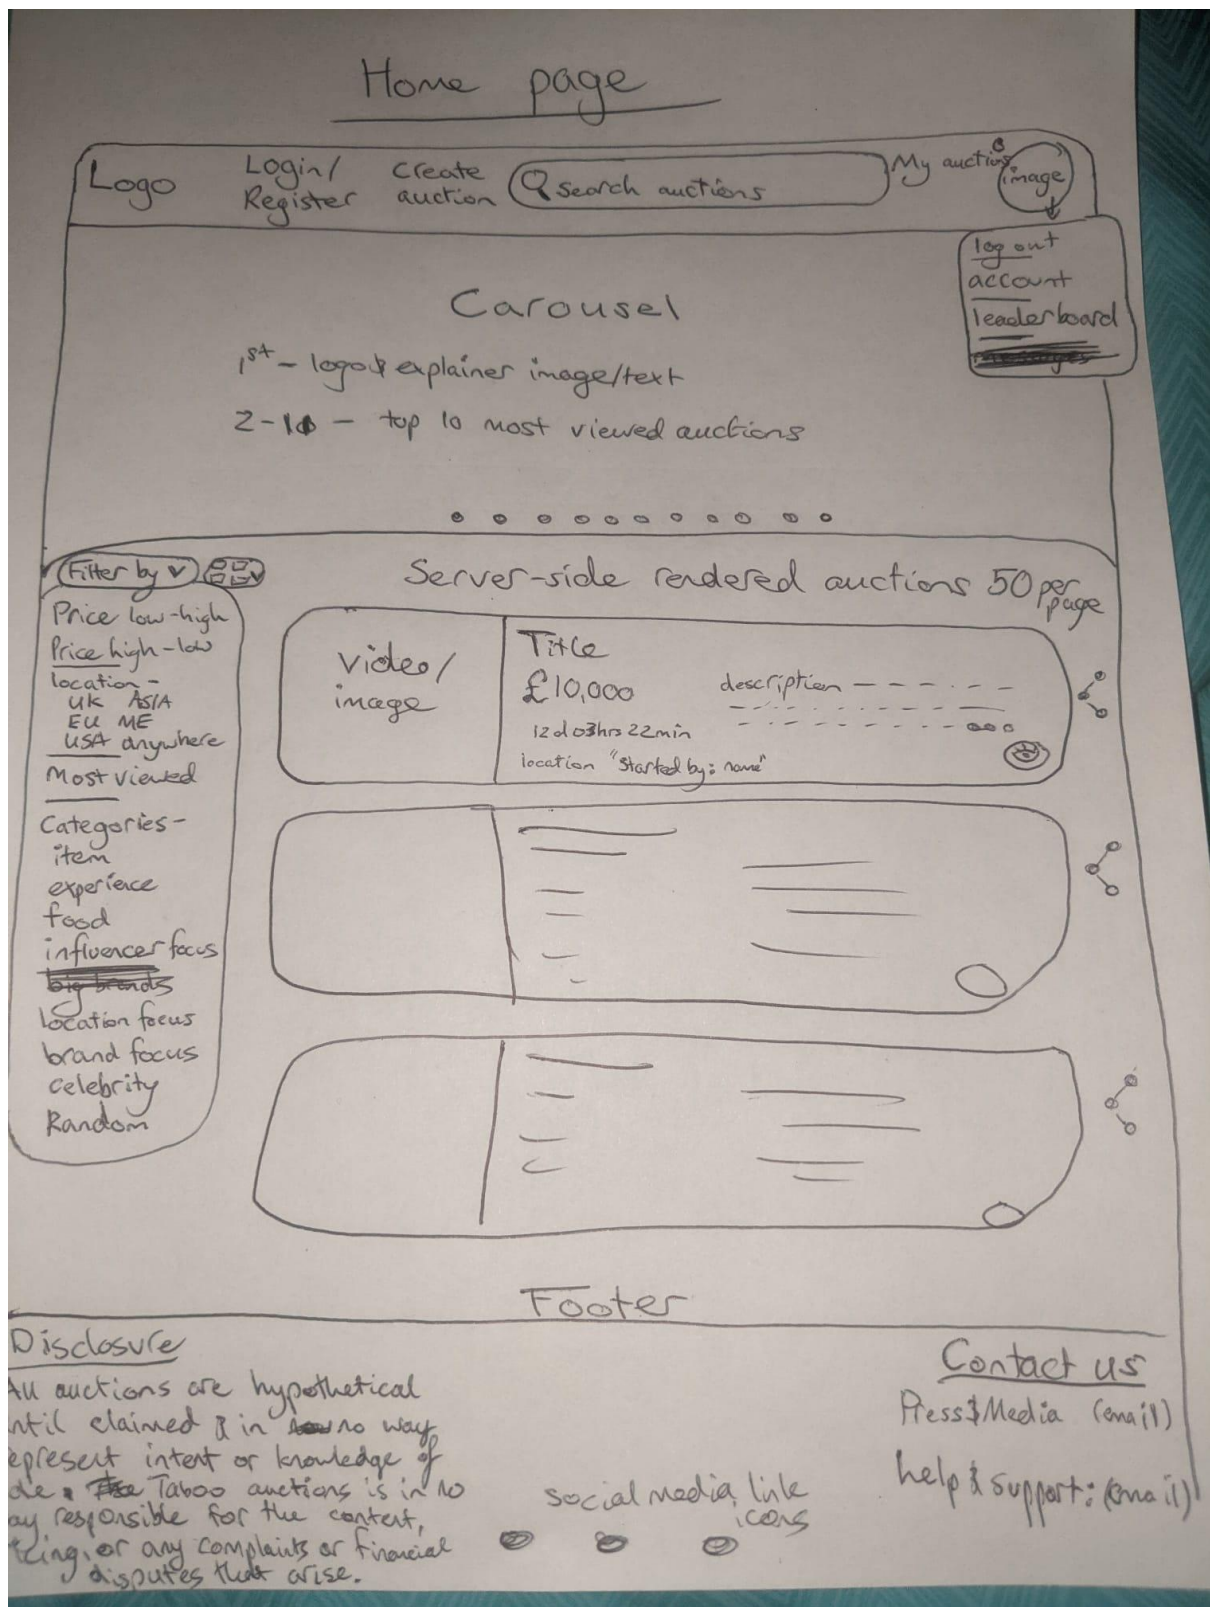 Home page
Logo
Login/
Register
Create
auction
search auctions
My auctions
image
log out
account
leaderboard
messages
Carousel
1st - logo & explainer image/text
2-10 - top 10 most viewed auctions
Filter by
Server-side rendered auctions 50 per
page
Price low-high
Price high-low
location -
UK ASIA
EU ME
USA anywhere
Most viewed
Categories -
item
experience
food
influencer focus
big brands
location focus
brand focus
celebrity
Random
video/
image
Title
£10,000
12d 03hrs 22min
location "Started by: name"
description
Footer
Disclosure
All auctions are hypothetical
ntil claimed & in no way
epresent intent or knowledge of
Taboo auctions is in no
ay responsible for the content,
or any complaints or financial
disputes that arise.
social media link
icons
Contact us
Press & Media (email)
help & support: (email)